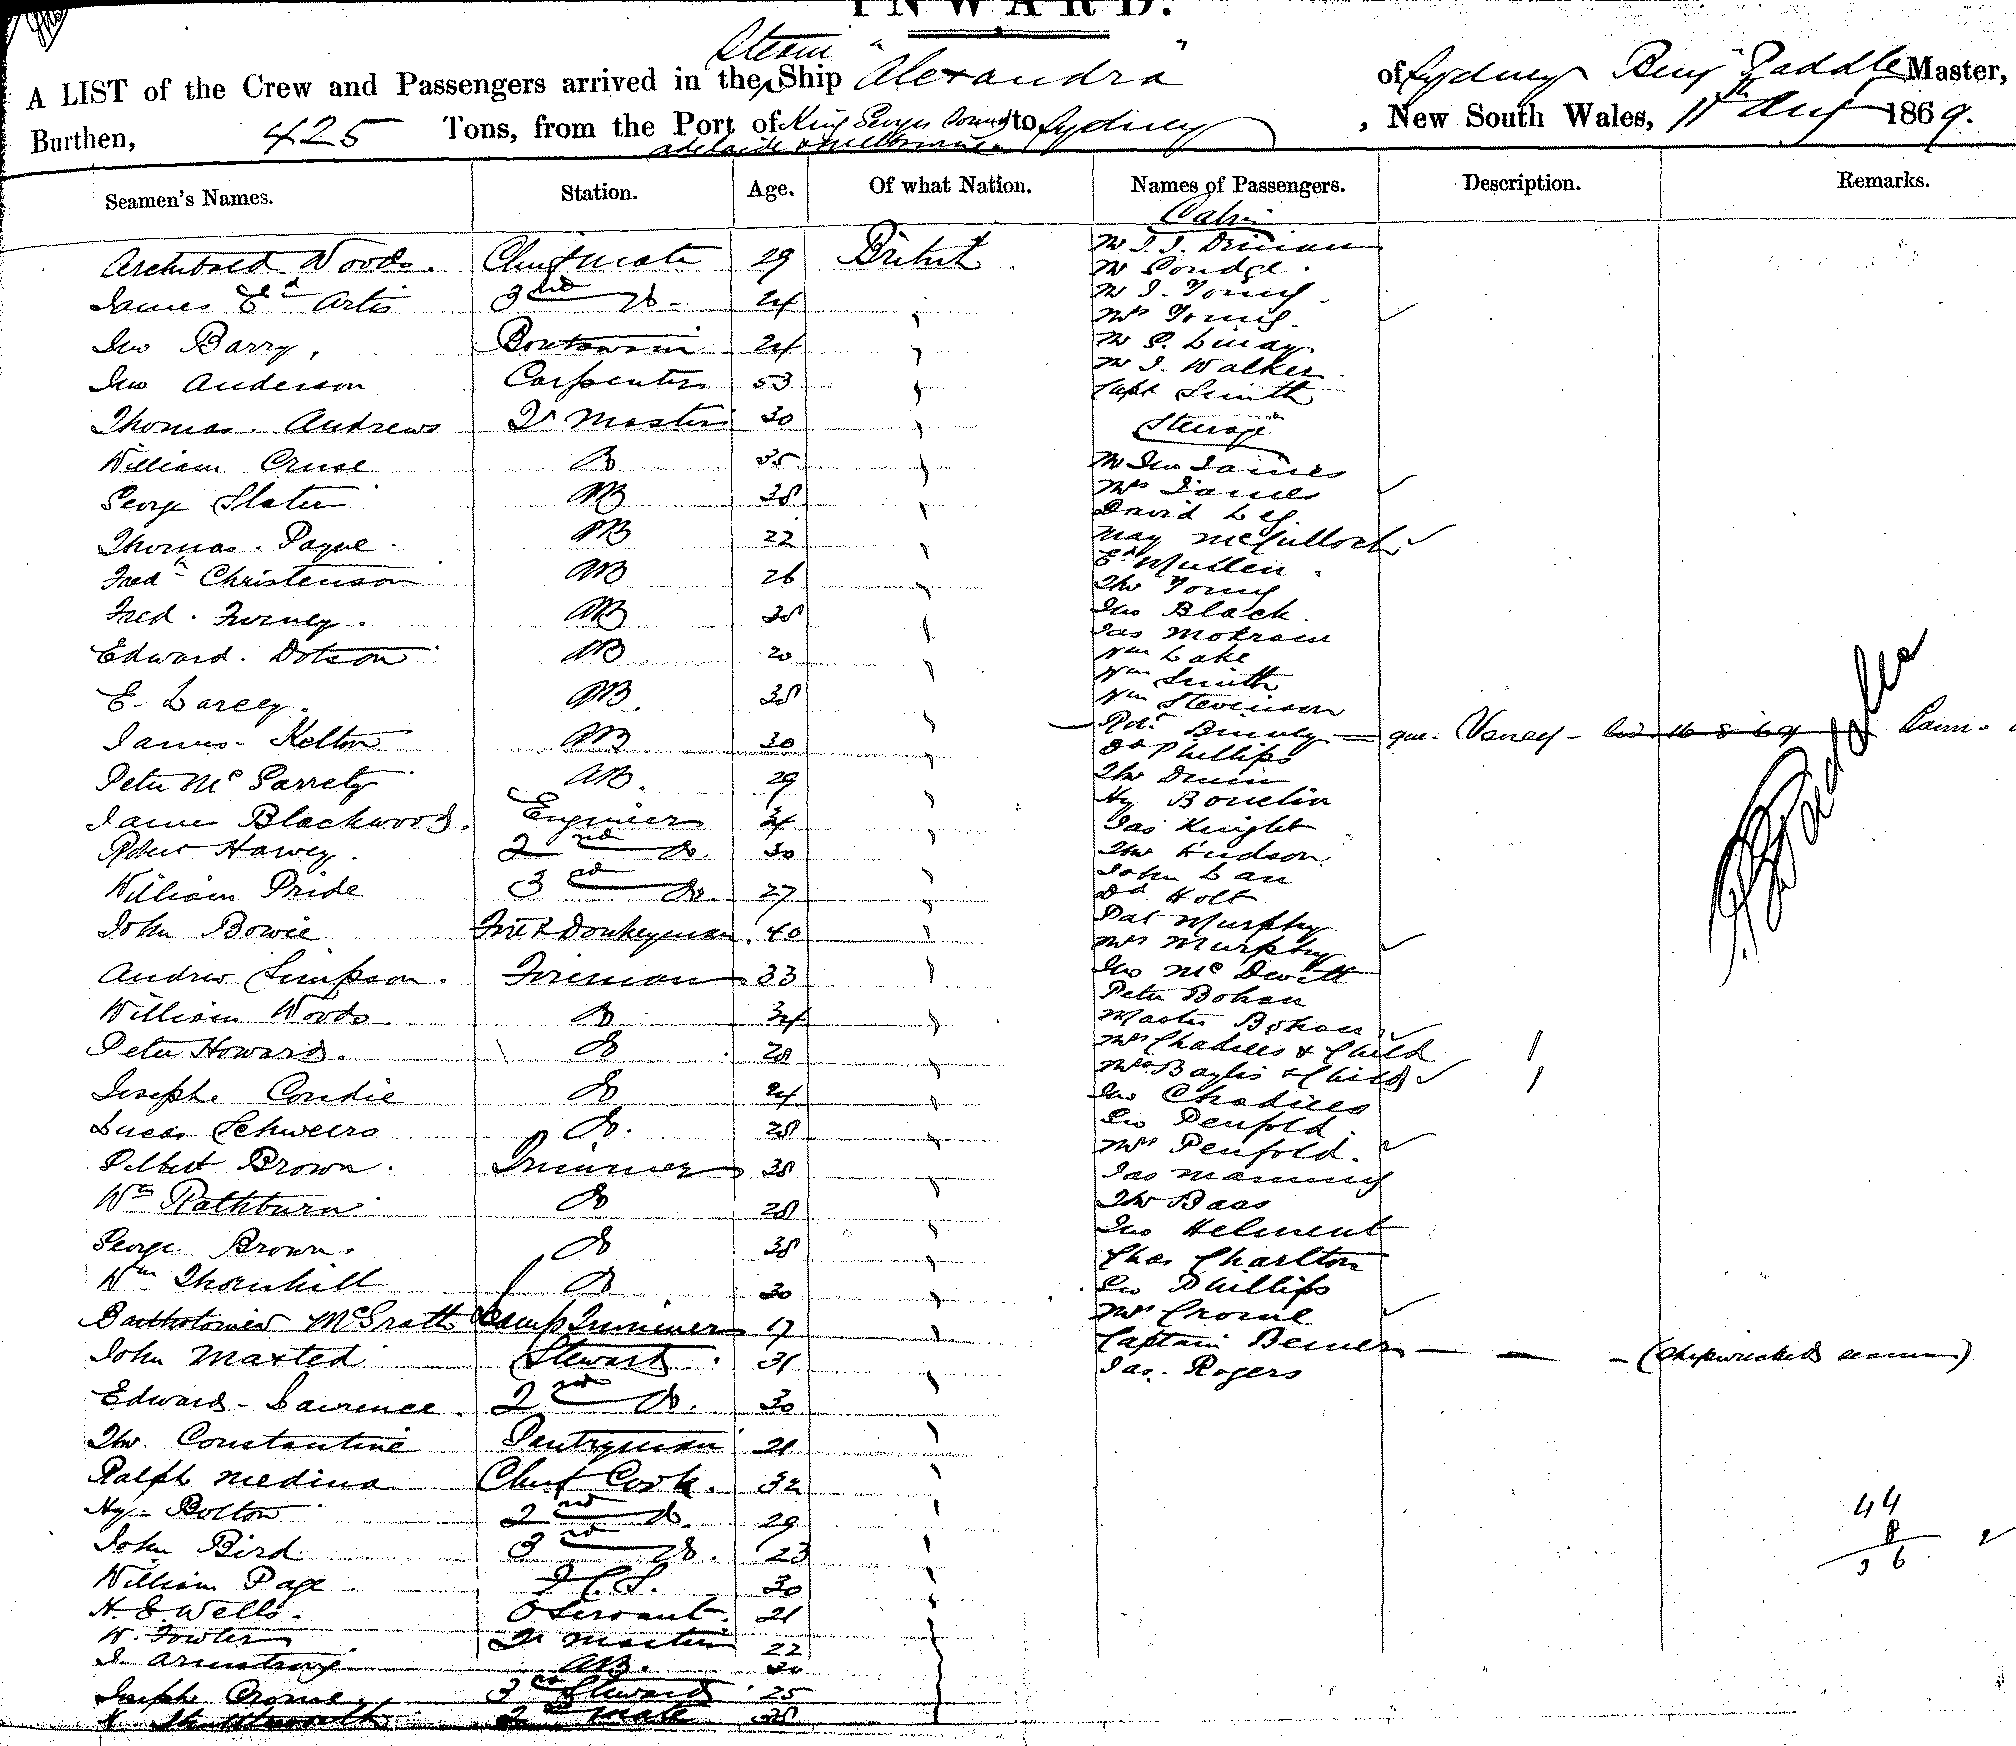 INWARD.
A LIST of the Crew and Passengers arrived in the Steam Ship "Alexandra" of Sydney Benj Paddle Master,
Burthen, 425 Tons, from the Port of King Georges Sound Adelaide & Melbourne to Sydney, New South Wales, 11th Aug 1869.
Seamen's Names. Station. Age. Of what Nation. Names of Passengers. Description. Remarks.
Cabin
Archibald Woods. Chief mate 29 British
James Artis 3rd Do 24
Jno Barry, Boatswain 24
Jno Anderson Carpenter 53
Thomas. Andrews Qr Master 30
William Cruse Do 35
George Slater AB 38
Thomas. Payne. AB 22
Fredk Christenson AB 26
Fred. AB
Edward. Dotson AB 20
E. Larcey. AB.
James. Kelton AB 30
Peter McGarrety AB. 29
James Blackwood. Engineer 34
Robert Harvey. 2nd Do. 30
William Pride 3rd Do. 27
John Bowie Donkeyman. 40
Andrew Simpson. Fireman 33
William Woods Do 34
Peter Howard. Do 28
Joseph. Condie Do 24
Lucas Schweers Do. 28
Brown. Trimmer 38
Wm Rathburn Do 28
George Brown. Do 38
Wm Thornhill Do 30
Bartholomew McGrath Lamp Trimmer 17
John Maxted Steward. 31
Edward. Lawrence. 2nd Do. 30
Thos. Constantine Pantryman 21
Ralph Medina Chief Cook. 32
Hy. Bolton 2nd Do. 29
John Bird 3rd Do. 23
William Page 30
H. E. Wells. Servant. 21
W. Fowler Qr Master 22
J. Armstrong AB. 30
Joseph Crome. 3rd Steward 25
2nd Mate
Mr
Mr
Mr J. Young.
Mrs Young.
Mr
Mr J. Walker.
Capt Smith
Steerage
Mr Jno James
Mrs James
David Ley
May McCulloch
Ed Mullen.
Thos Young
Jno Black.
Jas
Wm Lake
Wm Smith
Wm Stevenson
Robt — que. Veney - 16 8 69
Ed Phillips
Thos
Hy
Jas Knight
Thos Hudson.
John
Ed Holt
Pat Murphy
Mrs Murphy
Jno McDevitt
Peter Bohan
Master Bohan
Mrs Chadices & Child /
Mrs Baylis & Child /
Jno Chadices
Geo Penfold.
Mrs Penfold.
Jas Manning
Thos Baas
Jno Helment
Chas Charlton
Geo Phillips
Mrs Crome
Captain — — (Shipwrecked seaman)
Jas. Rogers
B Paddle
44
8
36